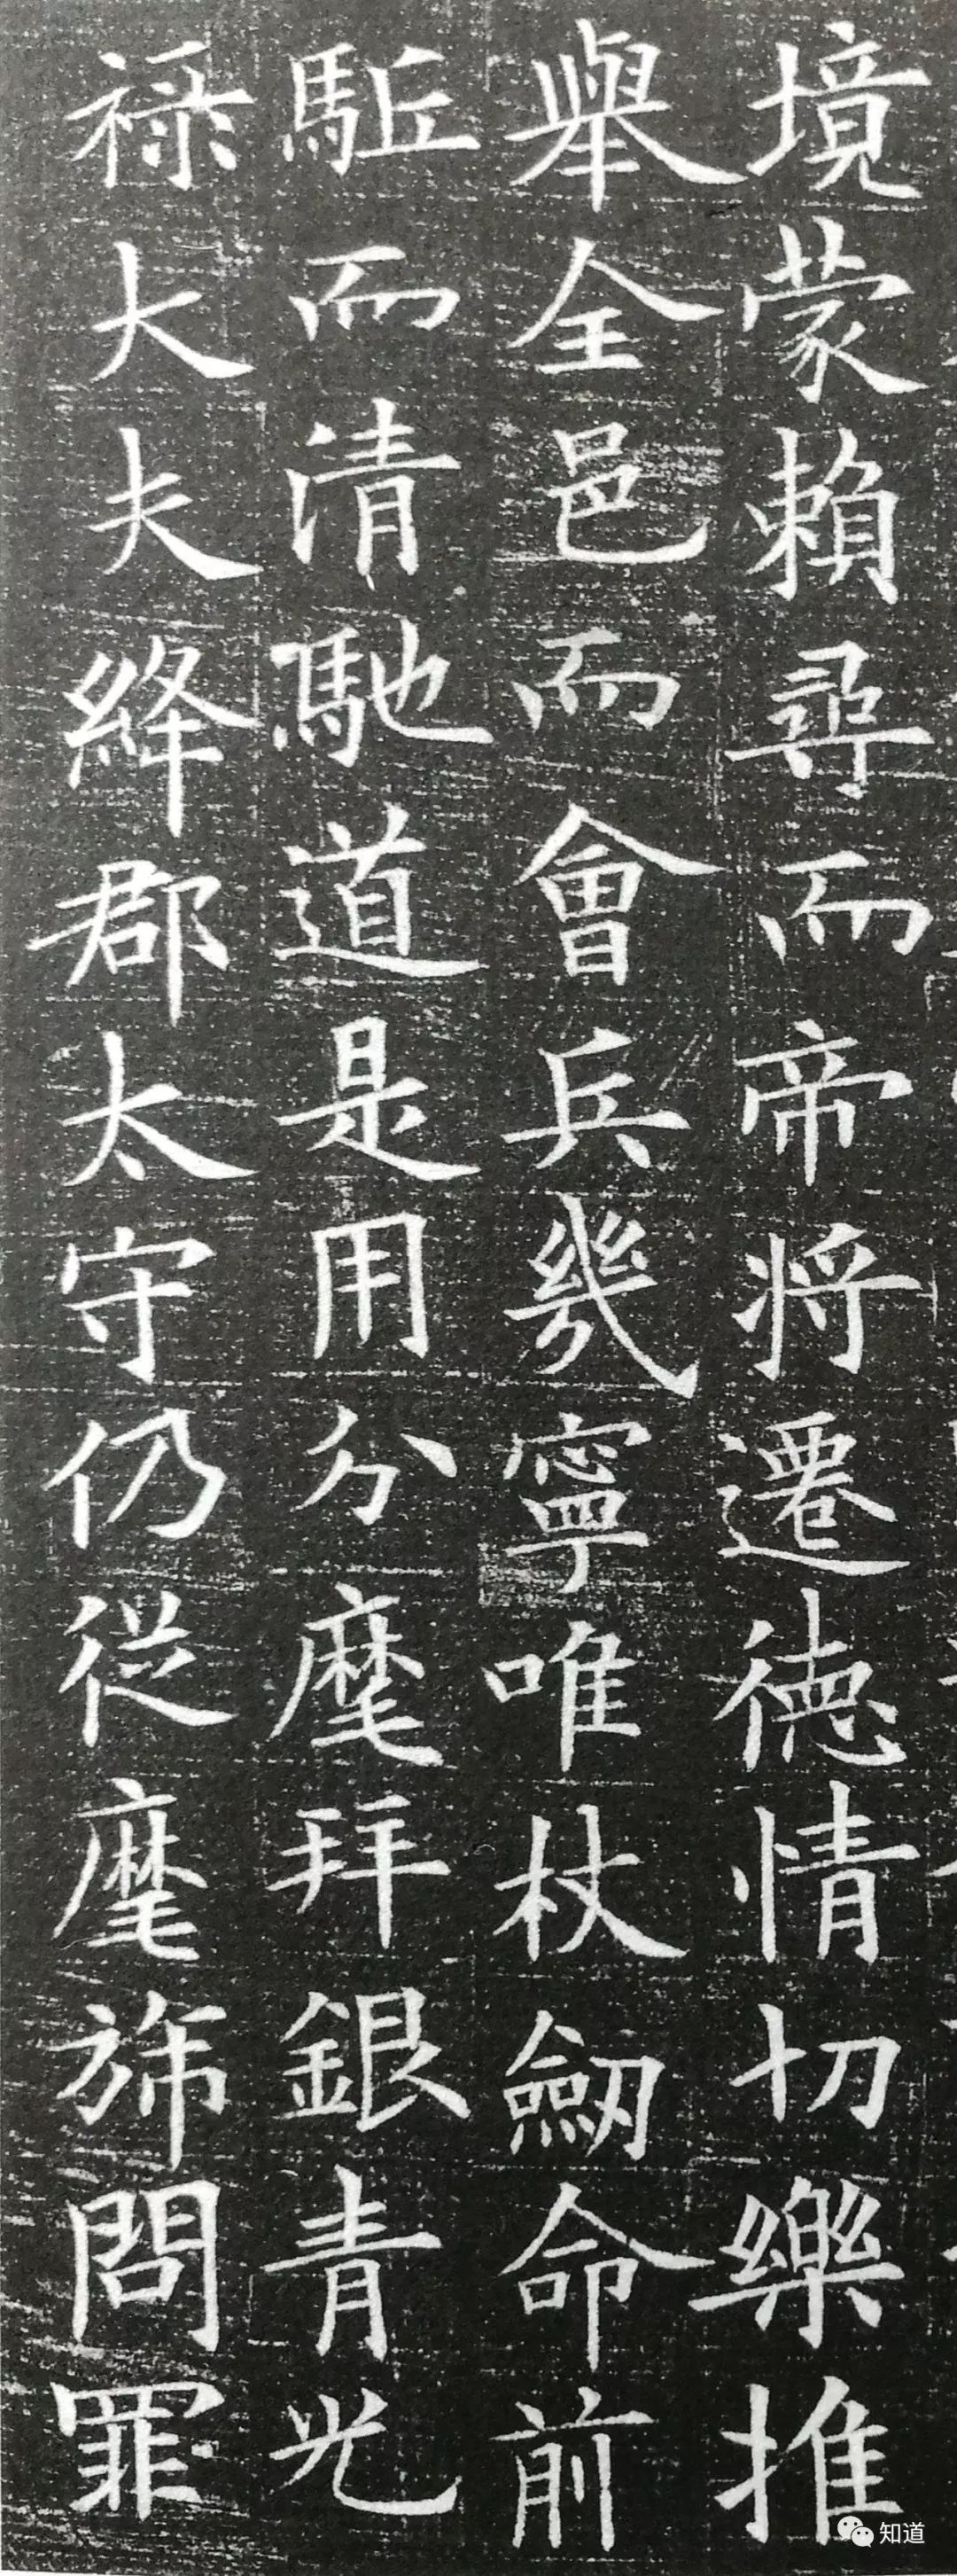 境蒙賴尋而帝將遷德情切樂推
舉全邑而會兵幾寧唯杖劒命前
駈而清馳道是用分麾拜銀青光
祿大夫絳郡太守仍從麾旆問罪
知道